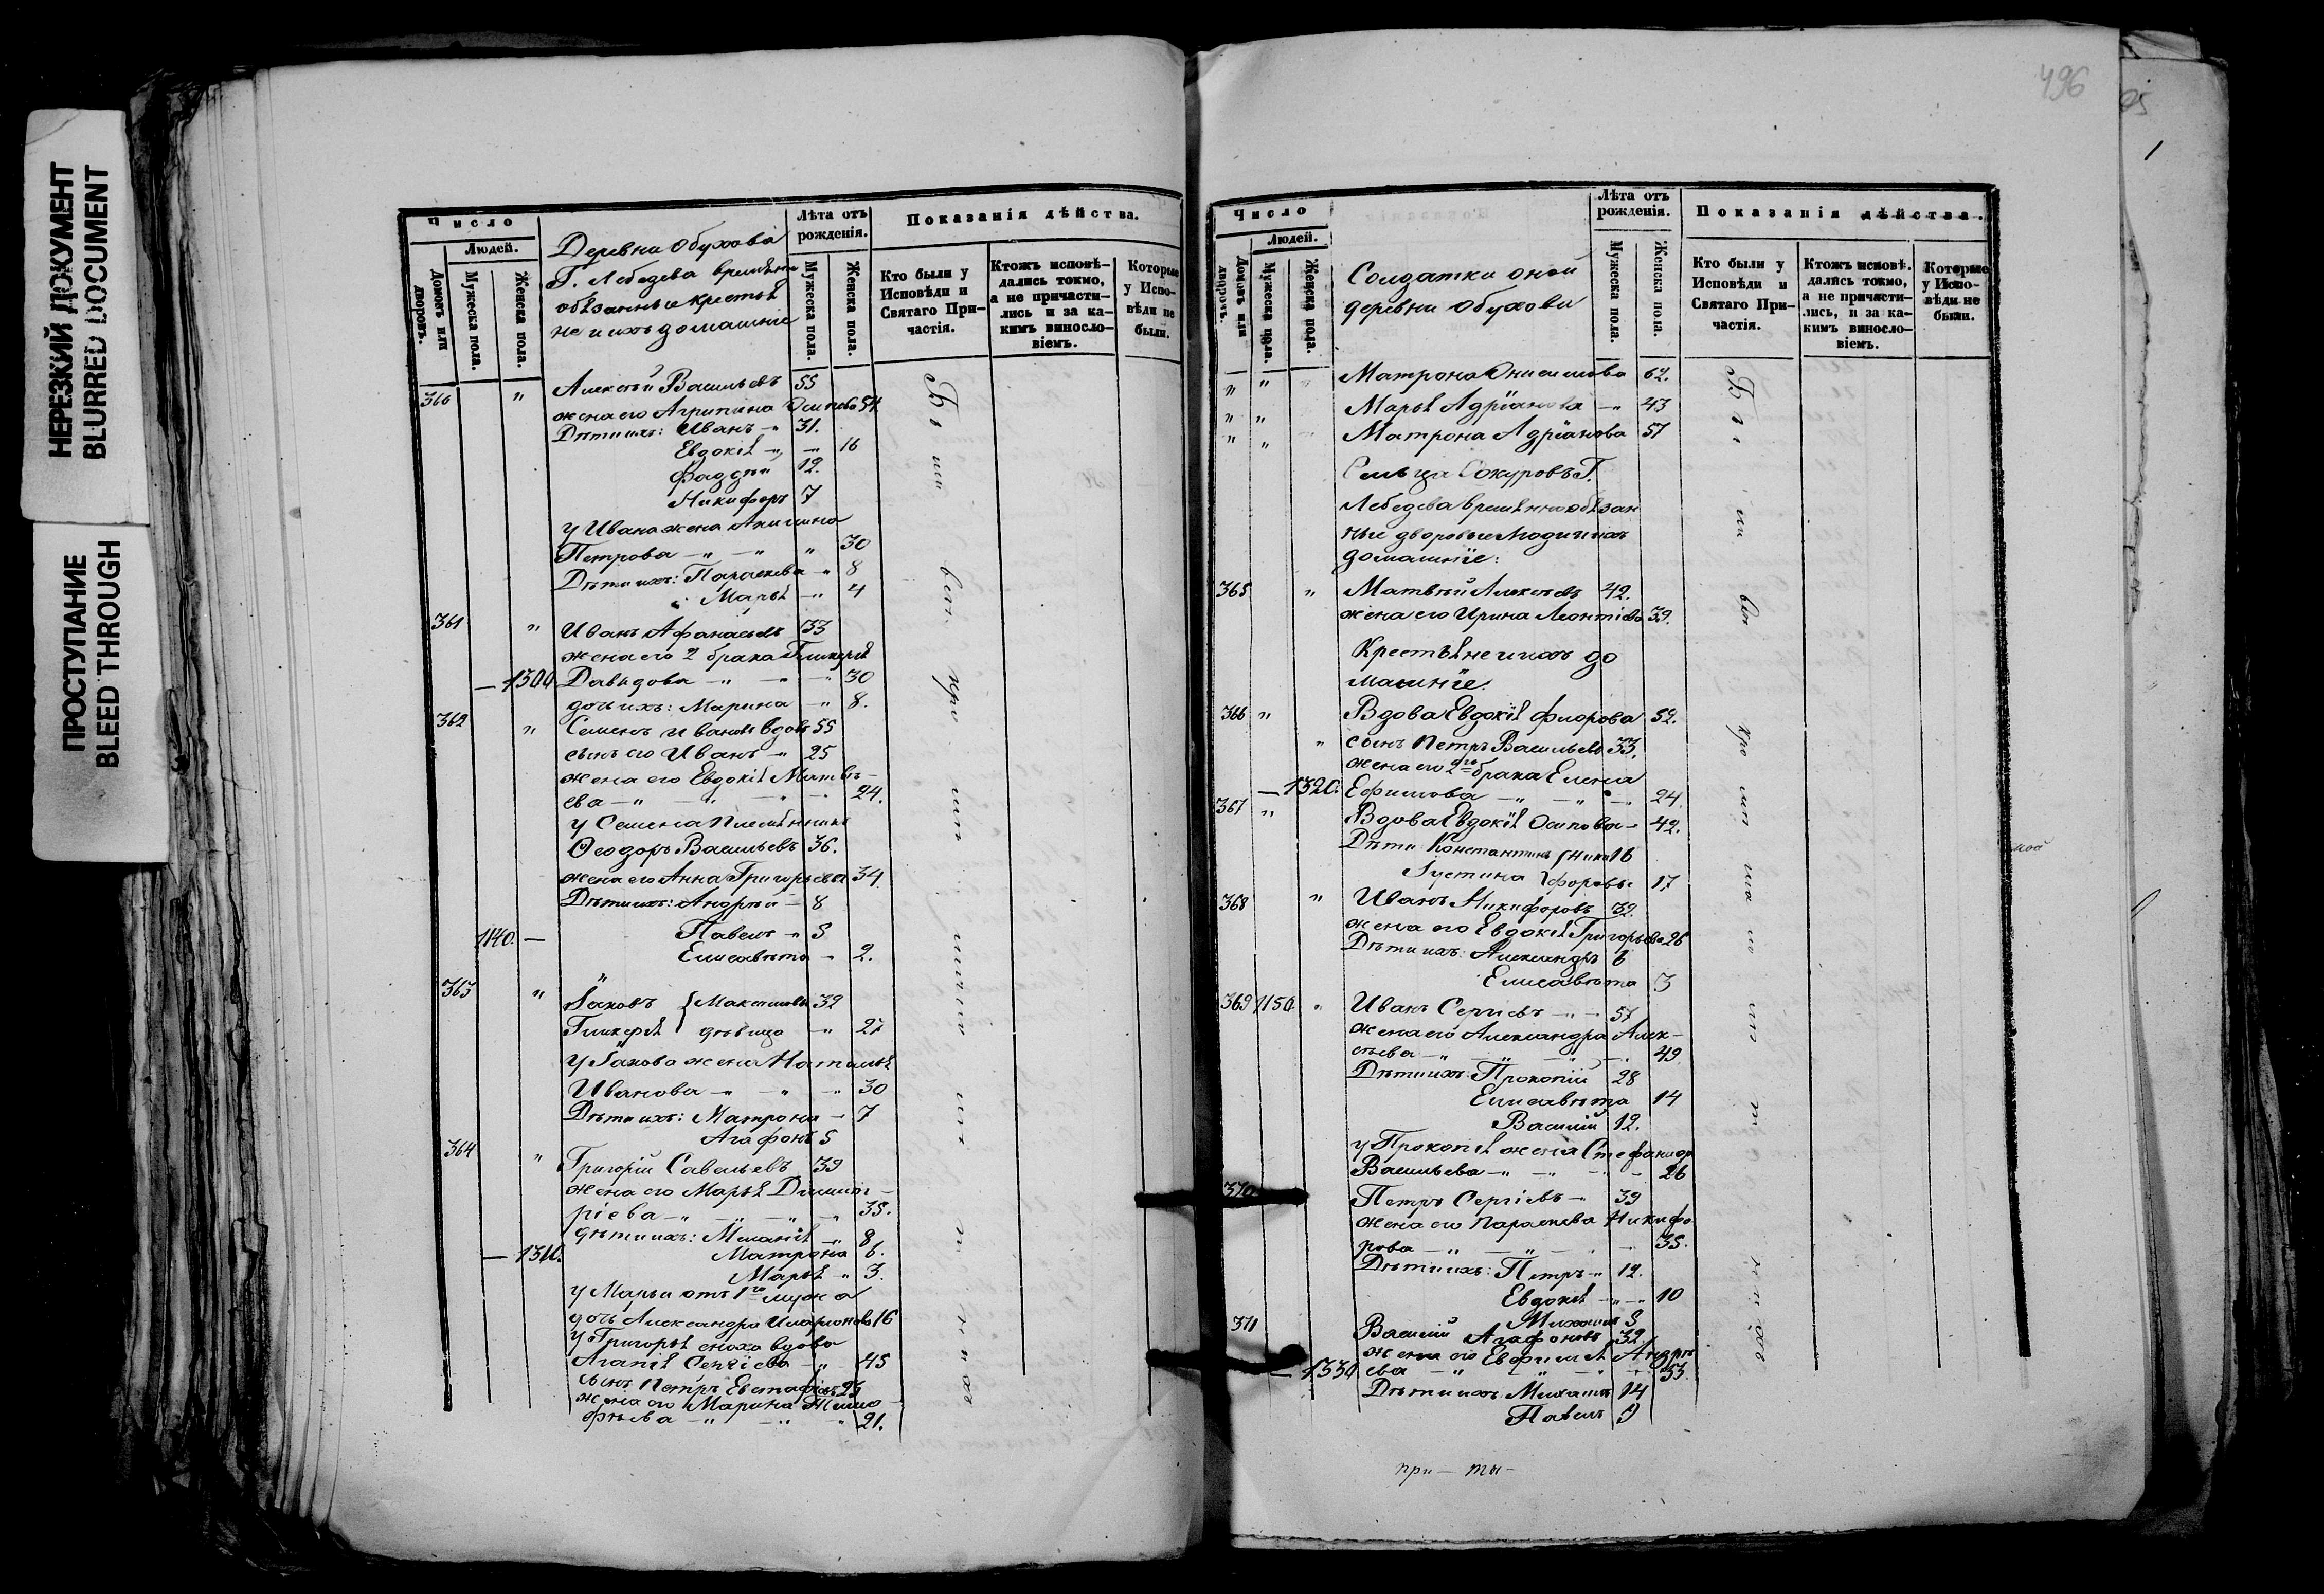 НЕРЕЗКИЙ ДОКУМЕНТ
BLURRED DOCUMENT
ПРОСТУПАНИЕ
BLEED THROUGH
Число
Людей.
Домовъ или дворовъ.
Мужеска пола.
Женска пола.
Деревни Обухова
Г. Лебедева временно
обязанные крестья
не и ихъ домашніе
Лѣта отъ рожденія.
Мужеска пола.
Женска пола.
Показанія дѣйства.
Кто были у Исповѣди и Святаго При-частія.
Ктожъ исповѣ-дались токмо, а не причасти-лись и за ка-кимъ виносло-віемъ.
Которые у Испо-вѣди не были.
360 " Алексѣй Васильевъ 55
жена его Агрипина Осипова 54.
Дѣти ихъ: Иванъ -"- 31.
Евдокія -"- -"- 16
Фаддѣй 12.
Никифоръ 7
у Ивана жена Акилина
Петрова -"- -"- " 30
Дѣти ихъ: Параскева -"- 8
Марья -"- 4
361 " Иванъ Афанасьевъ 33
жена его 2 брака Гликерія
— 1300 Давыдова -"- — -"- 30
дочь ихъ: Марина -"- 8.
362 " Семенъ Ивановъ вдовъ 55
сынъ его Иванъ -"- 25
жена его Евдокія Матвѣ-
ева -"- -"- -"- 24.
у Семена племянникъ
Ѳеодоръ Васильевъ 36.
жена его Анна Григорьева 34.
Дѣти ихъ: Андрей - 8
1140. — Павелъ -"- 5
Елисавета - 2.
363 " Іаковъ { Максимовы 32
Гликерія дѣвица -"- 27
у Іакова жена Наталья
Иванова -"- " -"- 30
Дѣти ихъ: Матрона - 7
Агафонъ 5
364 " Григорій Савельевъ 39
жена его Марья Димит-
ріева -"- -"- -"- 35.
дѣти ихъ: Меланія -"- 8
— 1310. Матрона 6.
Марья -"- 3.
у Марьи отъ 1го мужа
дочь Александра Иларіонова 16
у Григорья сноха вдова
Агапія Сергіева -"- 45
сынъ Петръ Евстафіевъ 23
жена его Марина
фѣева -"- -"- " 21.
Были вси
496
Число
Людей.
Домовъ или дворовъ.
Мужеска пола.
Женска пола.
Солдатки оной
деревни Обухови
Лѣта отъ рожденія.
Мужеска пола.
Женска пола.
Показанія дѣйства.
Кто были у Исповѣди и Святаго При-частія.
Ктожъ исповѣ-дались токмо, а не причасти-лись, и за ка-кимъ виносло-віемъ.
Которые у Испо-вѣди не были.
" " " Матрона Онисимова 62.
" " Марья Адріанова -"- 43
" " Матрона Адріанова 57
Сельца Сокуровъ Г.
Лебедева временнообязан
ные дворовые люди и ихъ
домашніе:
365 " Матвѣй Алексѣевъ 42.
жена его Ирина Леонтіева 39.
Крестьяне и ихъ до
машніе.
366 " Вдова Евдокія Фиорова 52.
" сынъ Петръ Васильевъ 33.
жена его 2го брака Елена
— 1320. Ефимова -"- -"- -"- 24.
367 " Вдова Евдокія Осипова - 42.
Дѣти Константинъ { Ники 16
Іустина } форовы 17
368 " Иванъ Никифоровъ 32.
жена его Евдокія Григорьева 26
Дѣти ихъ: Александръ 6
Елисавета 3
369 1150 " Иванъ Сергіевъ -"- 57
жена его Александра Алек-
сѣева -"- -"- -"- 49
Дѣти ихъ: Прокопій 28
Елисавета 14
Василій 12.
у Прокопія жена Стефанида
Васильева -"- -"- - 26
370 Петръ Сергіевъ -"- 39
жена его Параскева Никифо
рова -"- -"- -"- 35.
Дѣти ихъ: Петръ -"- 12.
Евдокія -"- -"- 10
Михаилъ 5
371 Василій Агафоновъ 32.
жена его Евфимія Андре
— 1330 ева -"- -"- -"- 33.
Дѣти ихъ: Михаилъ 14
Павелъ 9
Были вси
при — ты —